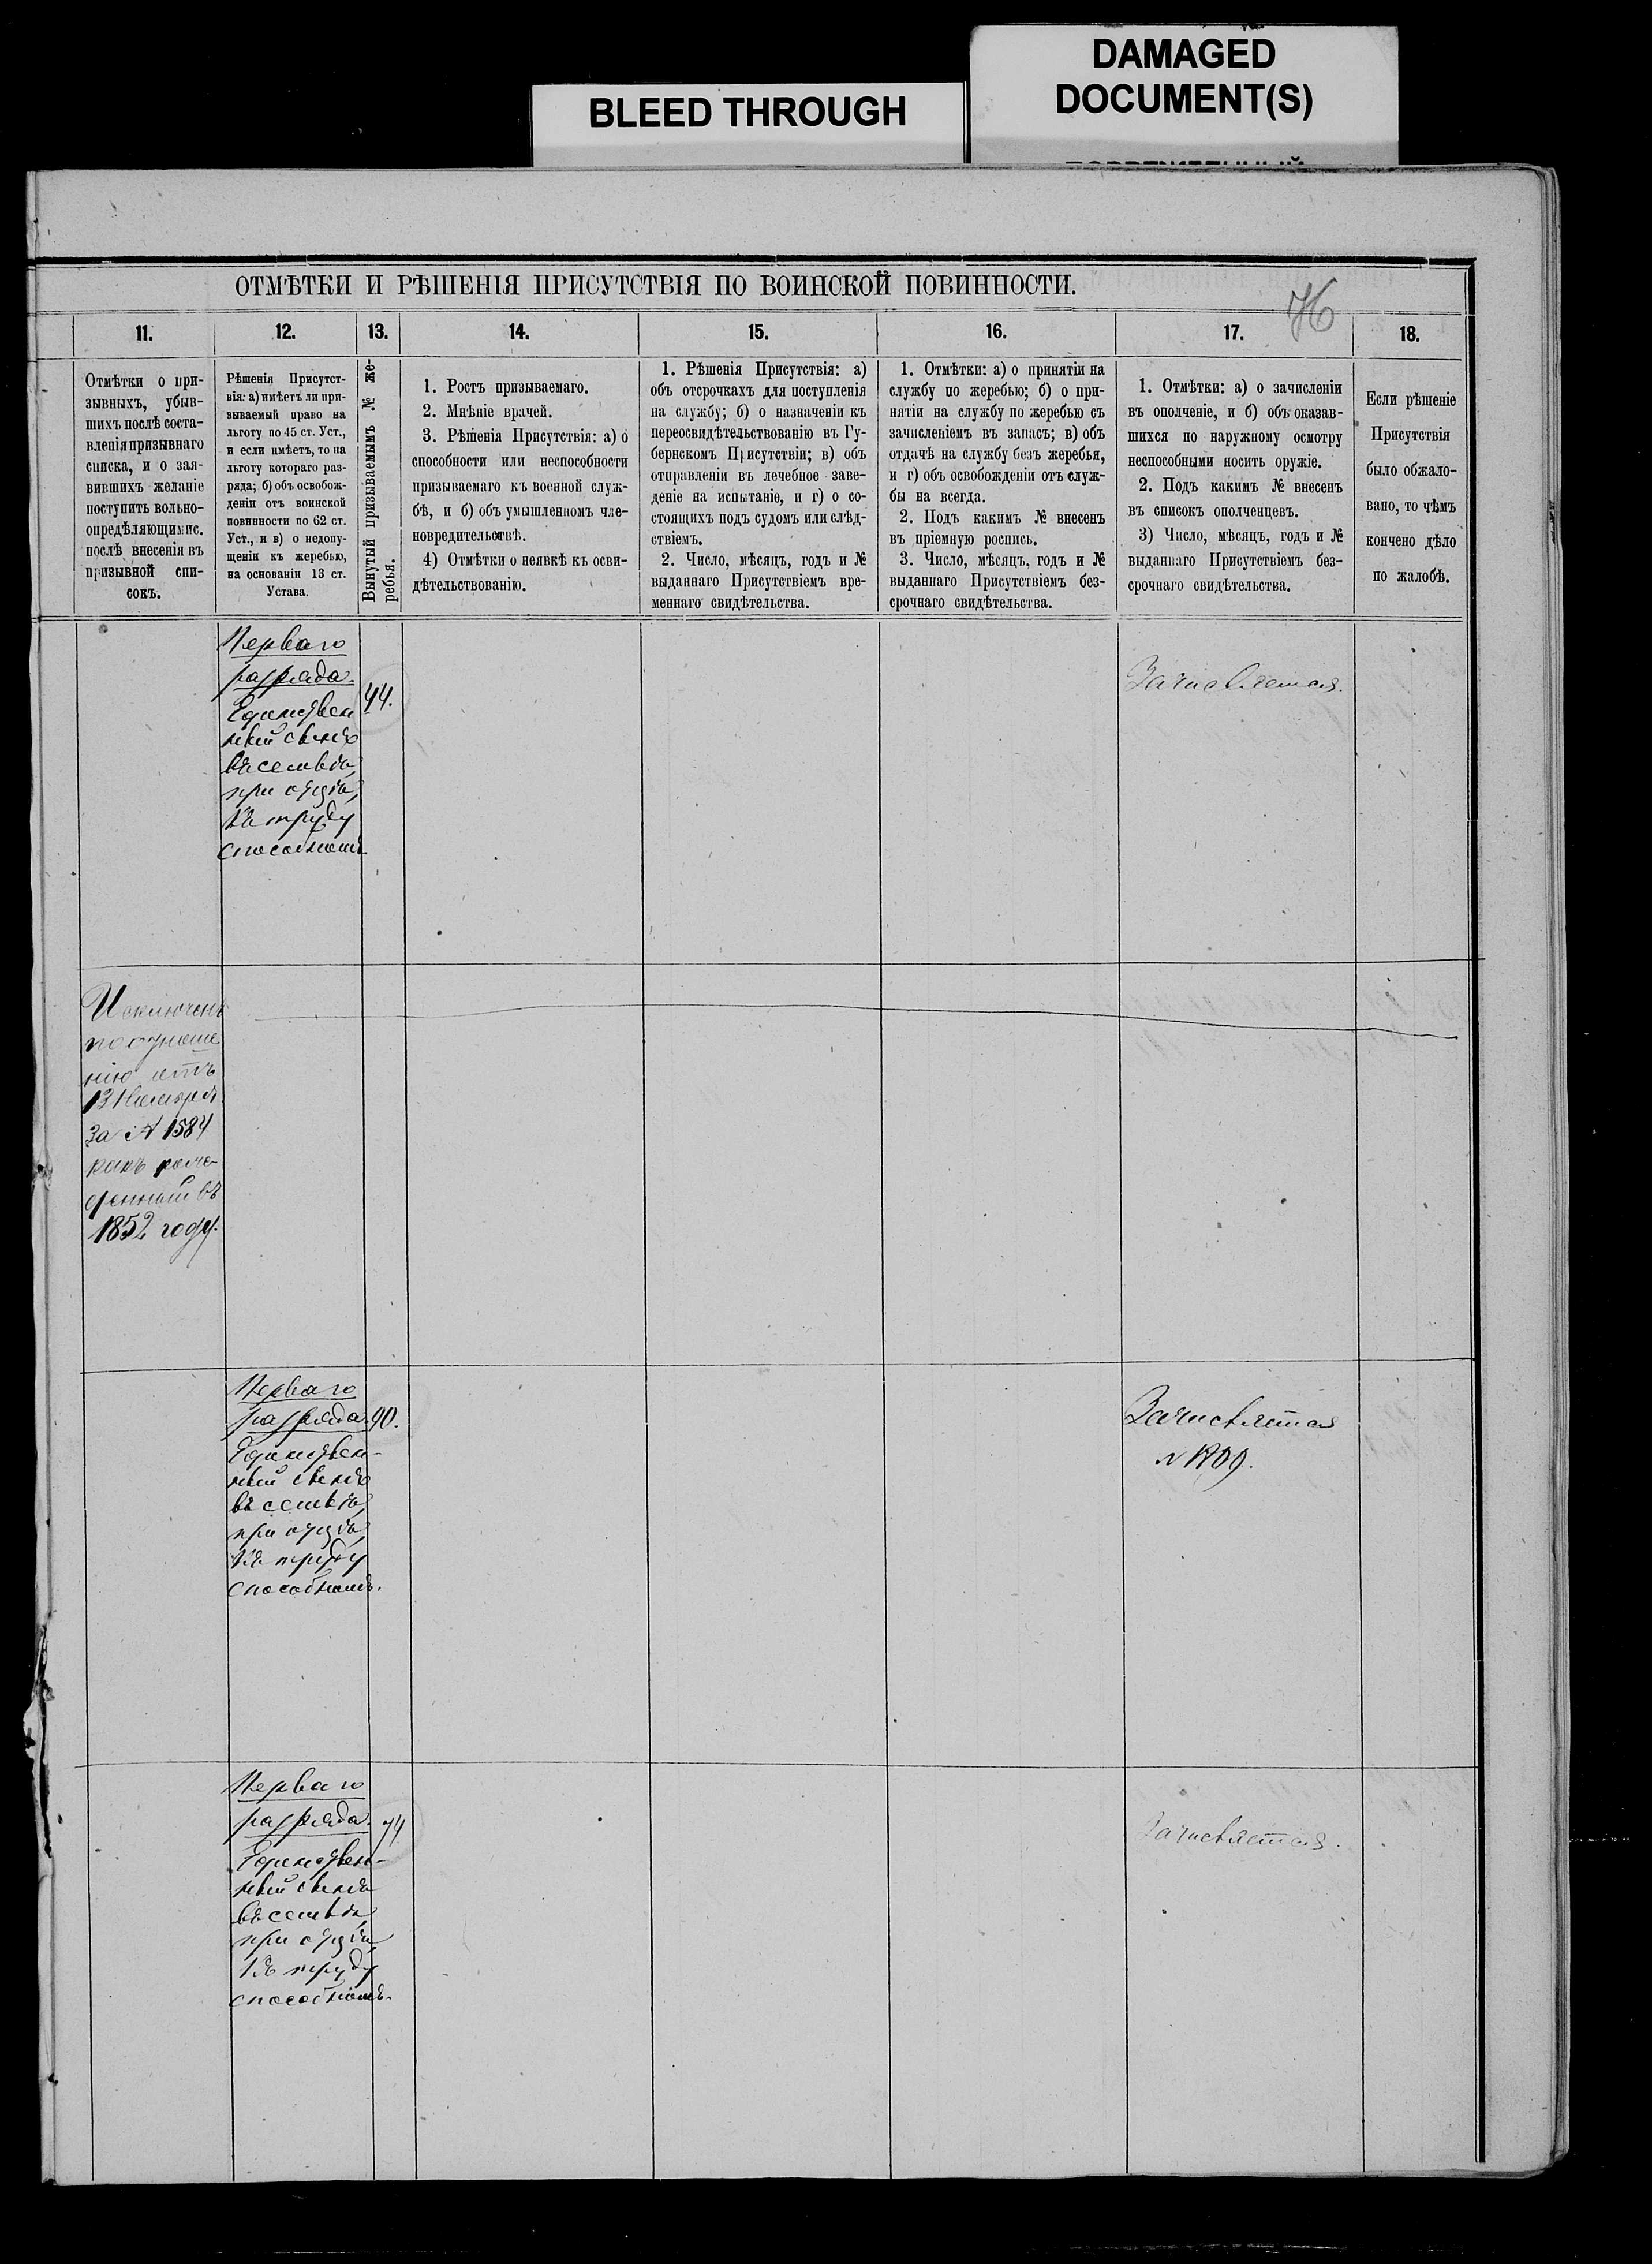 BLEED THROUGH
DAMAGED
DOCUMENT(S)
ОТМѢТКИ И РѢШЕНІЯ ПРИСУТСТВІЯ ПО ВОИНСКОЙ ПОВИННОСТИ.
76
11.
12.
13.
14.
15.
16.
17.
18.
Отмѣтки о при-
зывныхъ, убыв-
шихъ послѣ соста-
вленія призывнаго
списка, и о зая-
вившихъ желаніе
поступить вольно-
опредѣляющимис.
послѣ внесенія въ
призывной спи-
сокъ.
Рѣшенія Присутст-
вія: а) имѣетъ ли при-
зываемый право на
льготу по 45 ст. Уст.,
и если имѣетъ, то на
льготу котораго раз-
ряда; б) объ освобож-
деніи отъ воинской
повинности по 62 ст.
Уст., и в) о недопу-
щеніи къ жеребью,
на основаніи 13 ст.
Устава.
Вынутый призываемымъ № же-
ребья.
1. Ростъ призываемаго.
2. Мнѣніе врачей.
3. Рѣшенія Присутствія: а) о
способности или неспособности
призываемаго къ военной служ-
бѣ, и б) объ умышленномъ чле-
новредительствѣ.
4) Отмѣтки о неявкѣ къ осви-
дѣтельствованію.
1. Рѣшенія Присутствія: а)
объ отсрочкахъ для поступленія
на службу; б) о назначеніи къ
переосвидѣтельствованію въ Гу-
бернскомъ Присутствіи; в) объ
отправленіи въ лечебное заве-
деніе на испытаніе, и г) о со-
стоящихъ подъ судомъ или слѣд-
ствіемъ.
2. Число, мѣсяцъ, годъ и №
выданнаго Присутствіемъ вре-
меннаго свидѣтельства.
1. Отмѣтки: а) о принятіи на
службу по жеребью; б) о при-
нятіи на службу по жеребью съ
зачисленіемъ въ запасъ; в) объ
отдачѣ на службу безъ жеребья,
и г) объ освобожденіи отъ служ-
бы на всегда.
2. Подъ какимъ № внесенъ
въ пріемную роспись.
3. Число, мѣсяцъ, годъ и №
выданнаго Присутствіемъ без-
срочнаго свидѣтельства.
1. Отмѣтки: а) о зачисленіи
въ ополченіе, и б) объ оказав-
шихся по наружному осмотру
неспособными носить оружіе.
2. Подъ какимъ № внесенъ
въ списокъ ополченцевъ.
3) Число, мѣсяцъ, годъ и №
выданнаго Присутствіемъ без-
срочнаго свидѣтельства.
Если рѣшеніе
Присутствія
было обжало-
вано, то чѣмъ
кончено дѣло
по жалобѣ.
Перваго
разряда.
Единствен
ный сынъ
въ семьѣ,
при отцѣ,
къ труду
способномъ
44.
Зачисляется.
Исключенъ
по отноше
нію отъ
13 Ноября
за № 1584
какъ рож-
денный въ
1852 году.
Перваго
разряда.
Единствен-
ный сынъ
въ семьѣ,
при отцѣ,
къ труду
способномъ.
90.
Зачисляется
Перваго
разряда.
Единствен-
ный сынъ
въ семьѣ,
при отцѣ,
къ труду
способномъ.
74
Зачисляется.